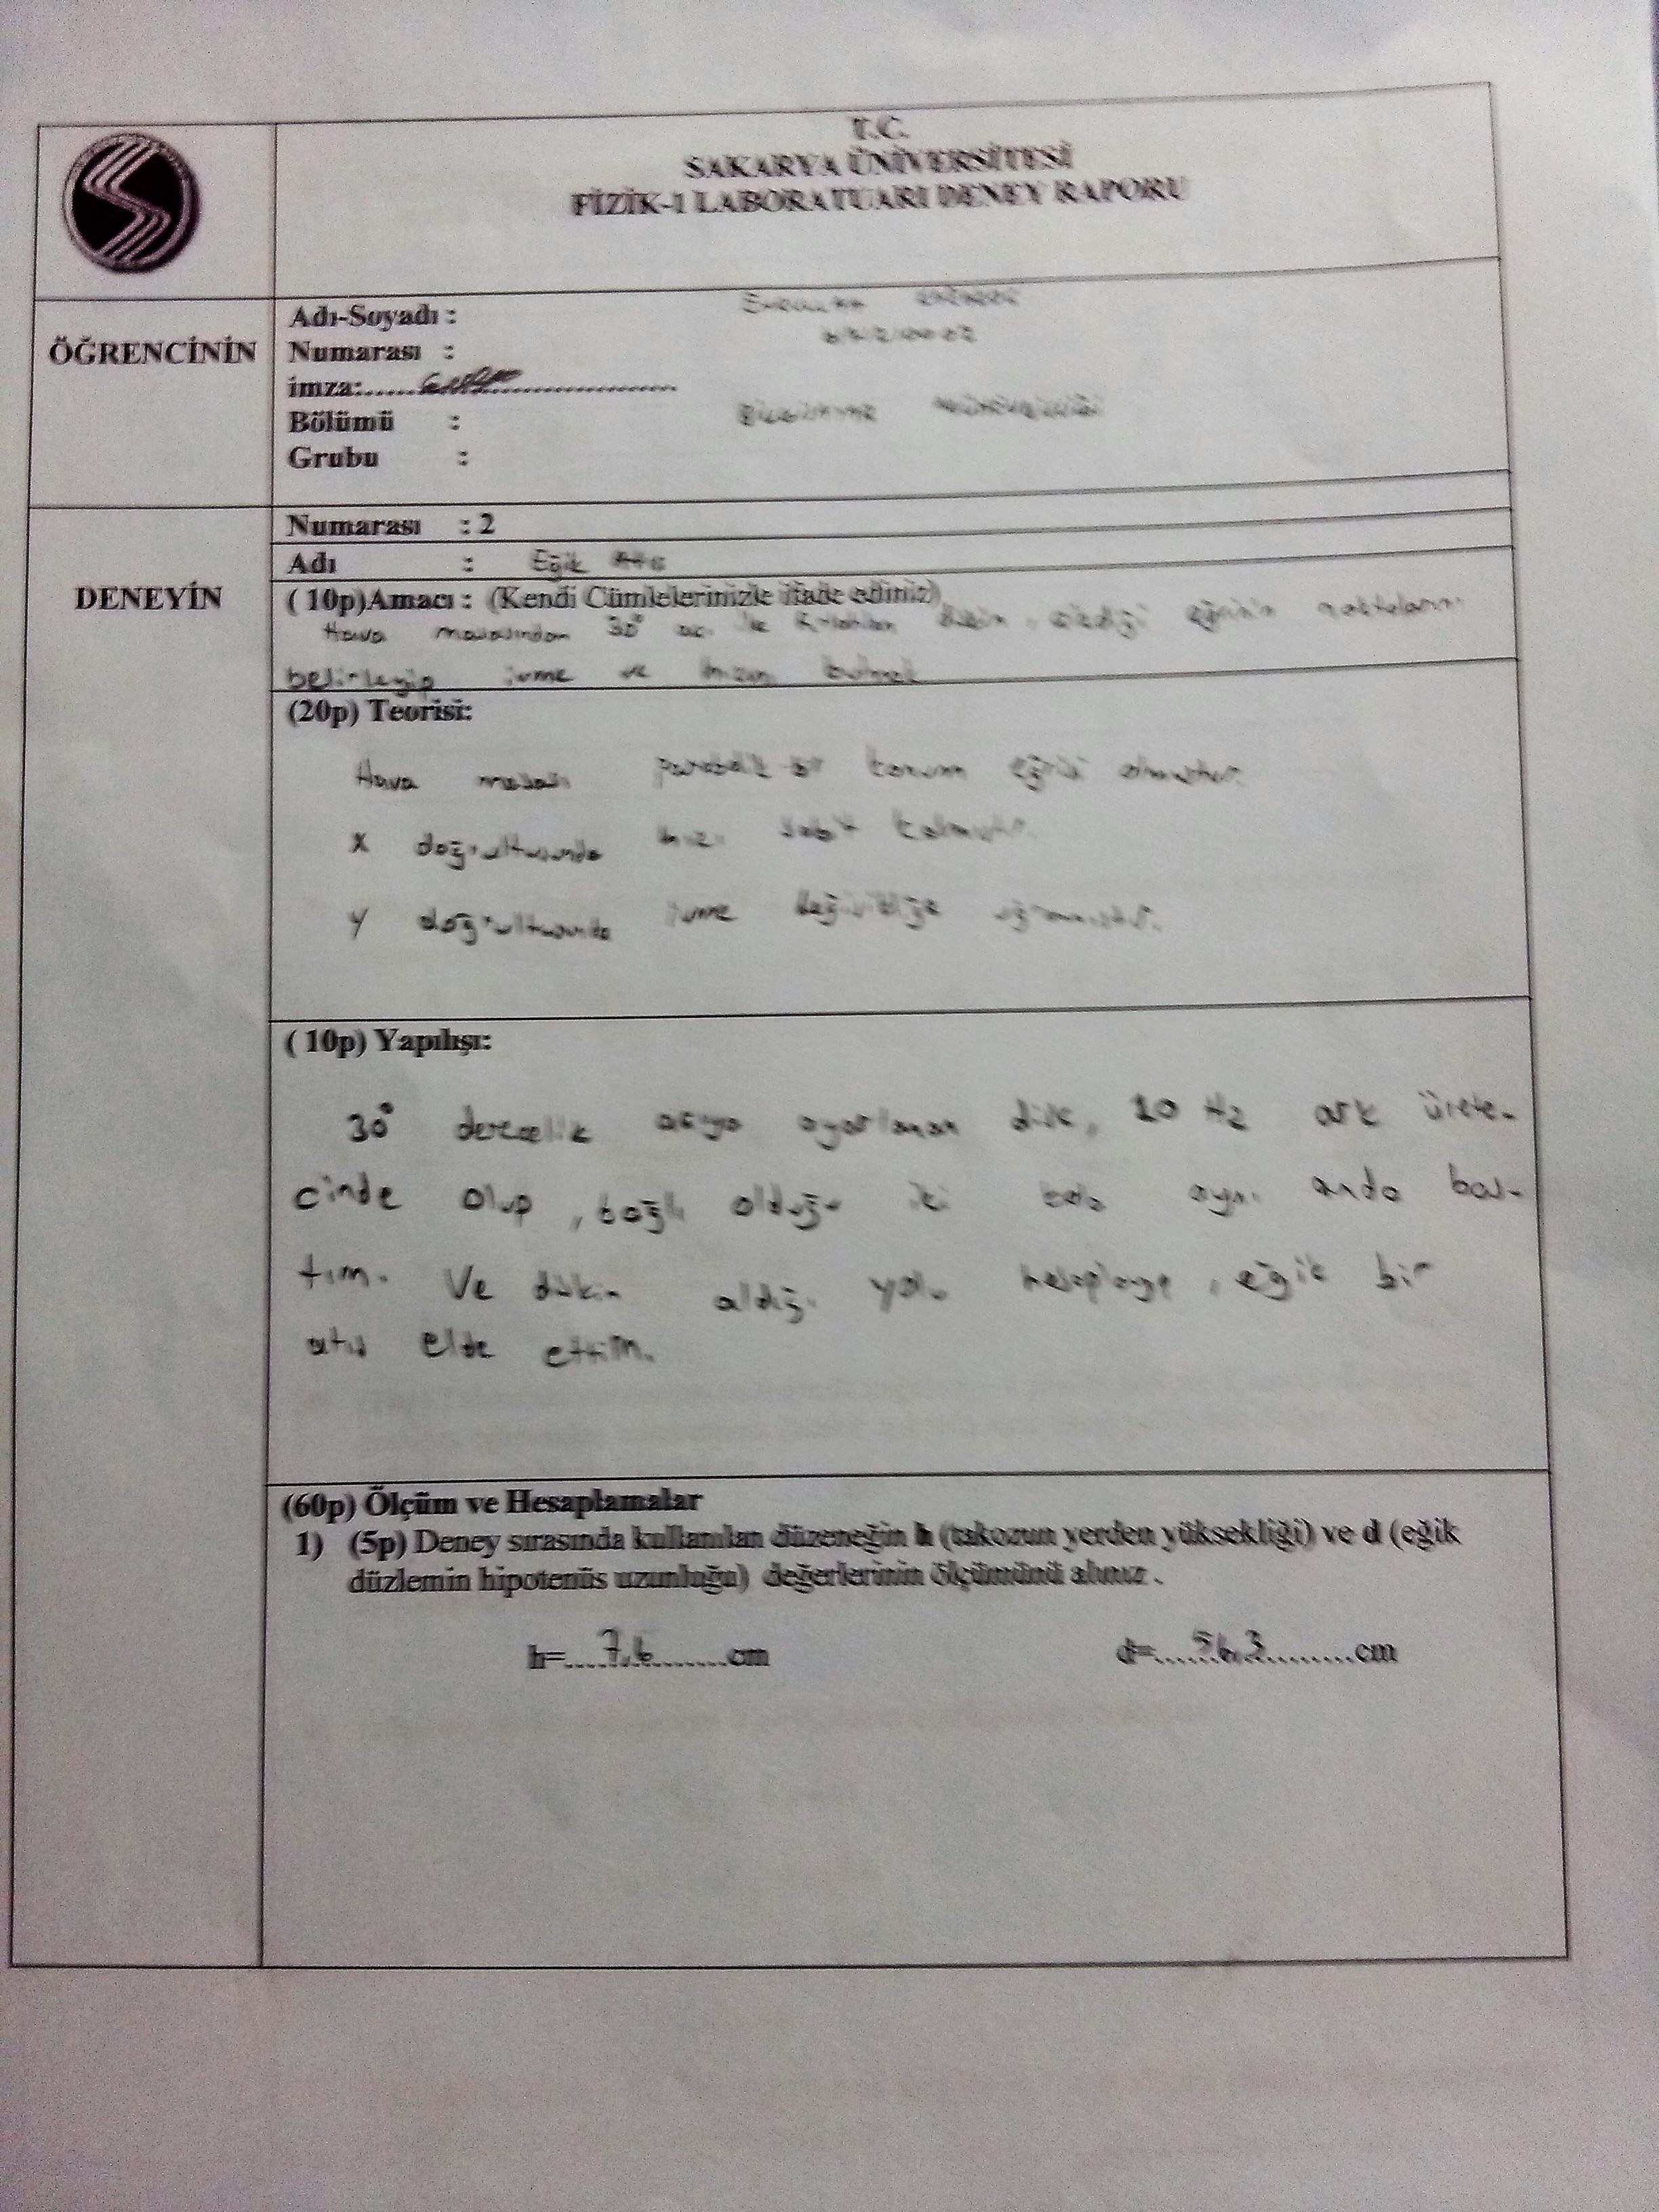 T.C.
SAKARYA ÜNİVERSİTESİ
FİZİK-1 LABORATUARI DENEY RAPORU
ÖĞRENCİNİN
Adı-Soyadı :
Numarası :
imza:..............................
Bölümü :
Grubu :
DENEYİN
Numarası : 2
Adı : Eğik Atış
( 10p)Amacı : (Kendi Cümlelerinizle ifade ediniz)
Hava masasından 30° açı ile fırlatılan diskin, çizdiği eğrinin noktalarını
belirleyip ivme ve hızını bulmak
(20p) Teorisi:
Hava masası parabolik bir konum eğrisi
X doğrultusunda hızı sabit kalmıştır.
Y doğrultusunda ivme değişikliğe uğramıştır.
( 10p) Yapılışı:
30° derecelik açıya ayarlanan disk, 10 Hz ark ürete-
cinde olup, bağlı olduğu iki aynı anda bas-
tım. Ve diskin aldığı yolu hesaplayıp, eğik bir
atış elde ettim.
(60p) Ölçüm ve Hesaplamalar
1) (5p) Deney sırasında kullanılan düzeneğin h (takozun yerden yüksekliği) ve d (eğik
düzlemin hipotenüs uzunluğu) değerlerinin ölçümünü alınız .
h=....7.6.......cm d=......56,3.........cm